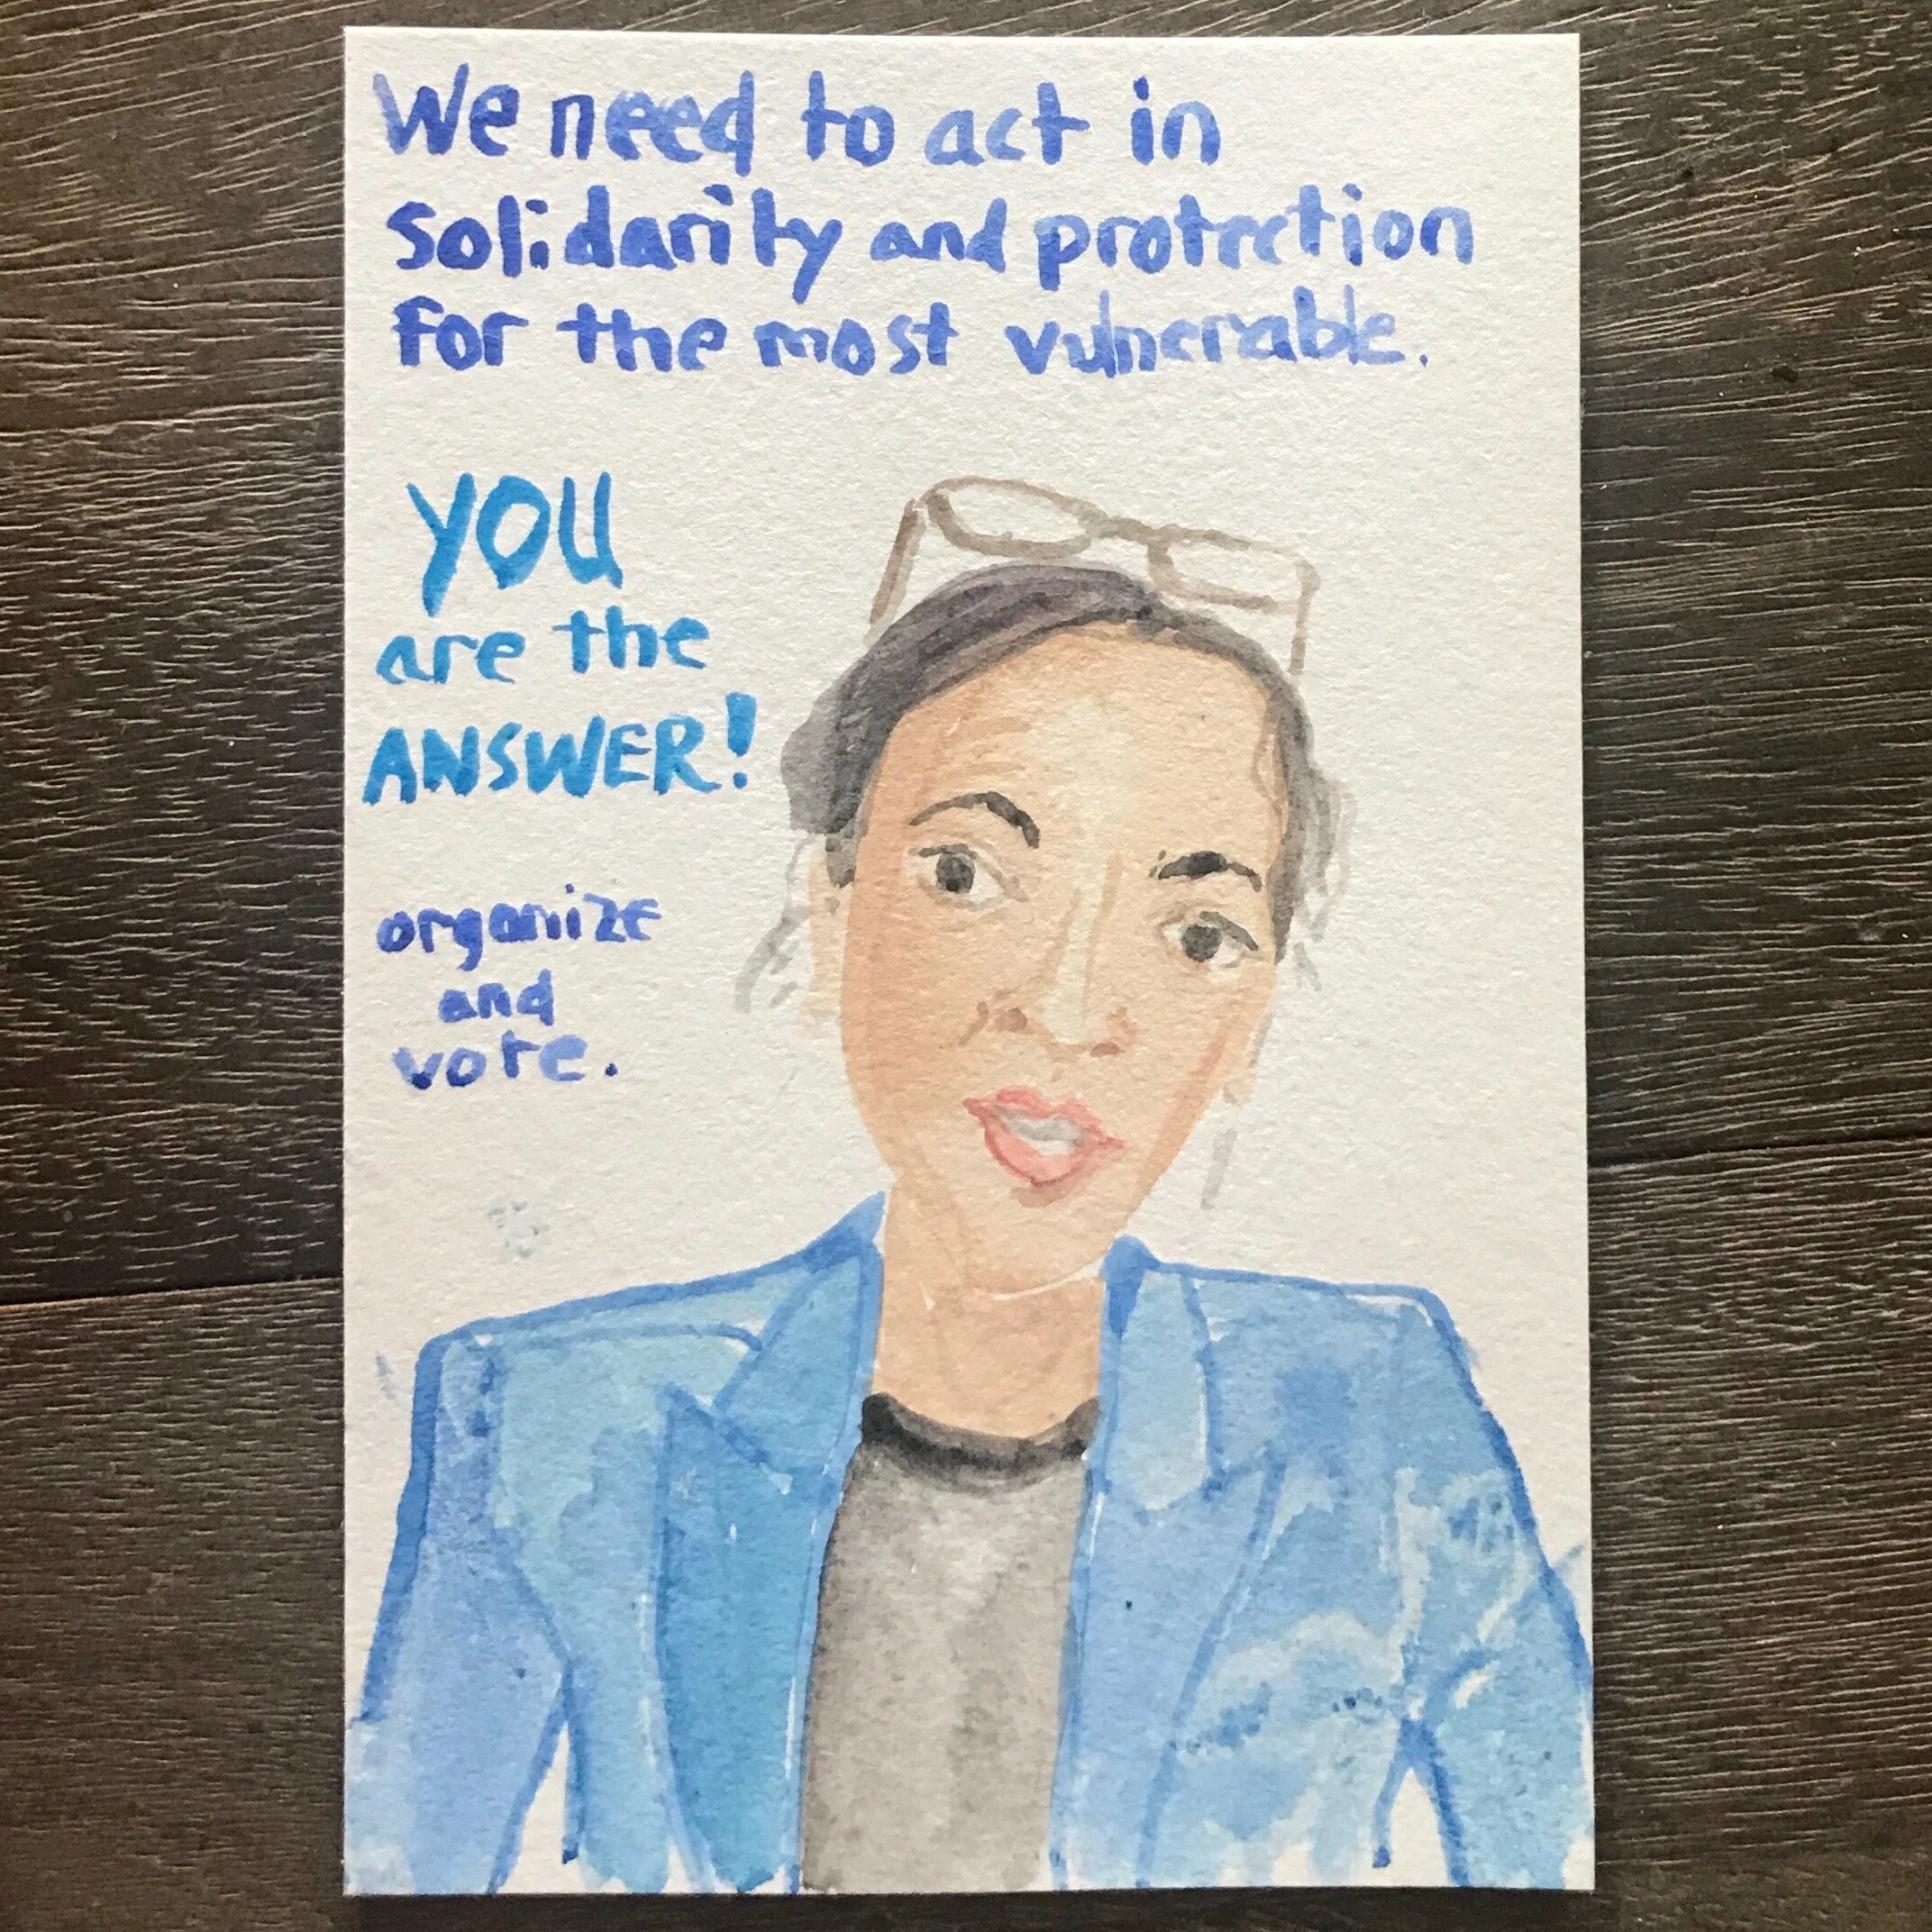 We need to act in
solidarity and protection
for the most vulnerable.
YOU
are the
ANSWER!
organize
and
vote.